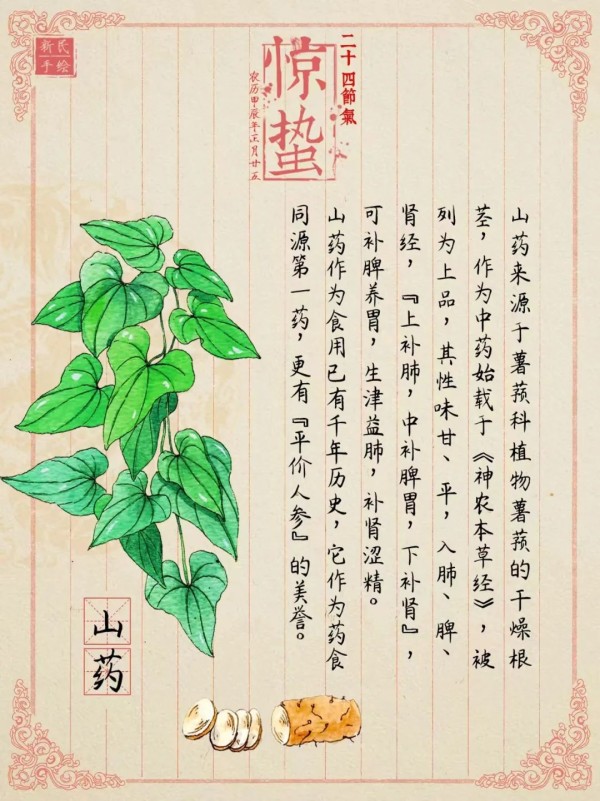 新民
手绘
二十四節氣
惊蛰
农历甲辰年正月廿五
山药来源于薯蓣科植物薯蓣的干燥根
茎，作为中药始载于《神农本草经》，被
列为上品，其性味甘、平，入肺、脾、
肾经，『上补肺，中补脾胃，下补肾』，
可补脾养胃，生津益肺，补肾涩精。
山药作为食用已有千年历史，它作为药食
同源第一药，更有『平价人参』的美誉。
山药